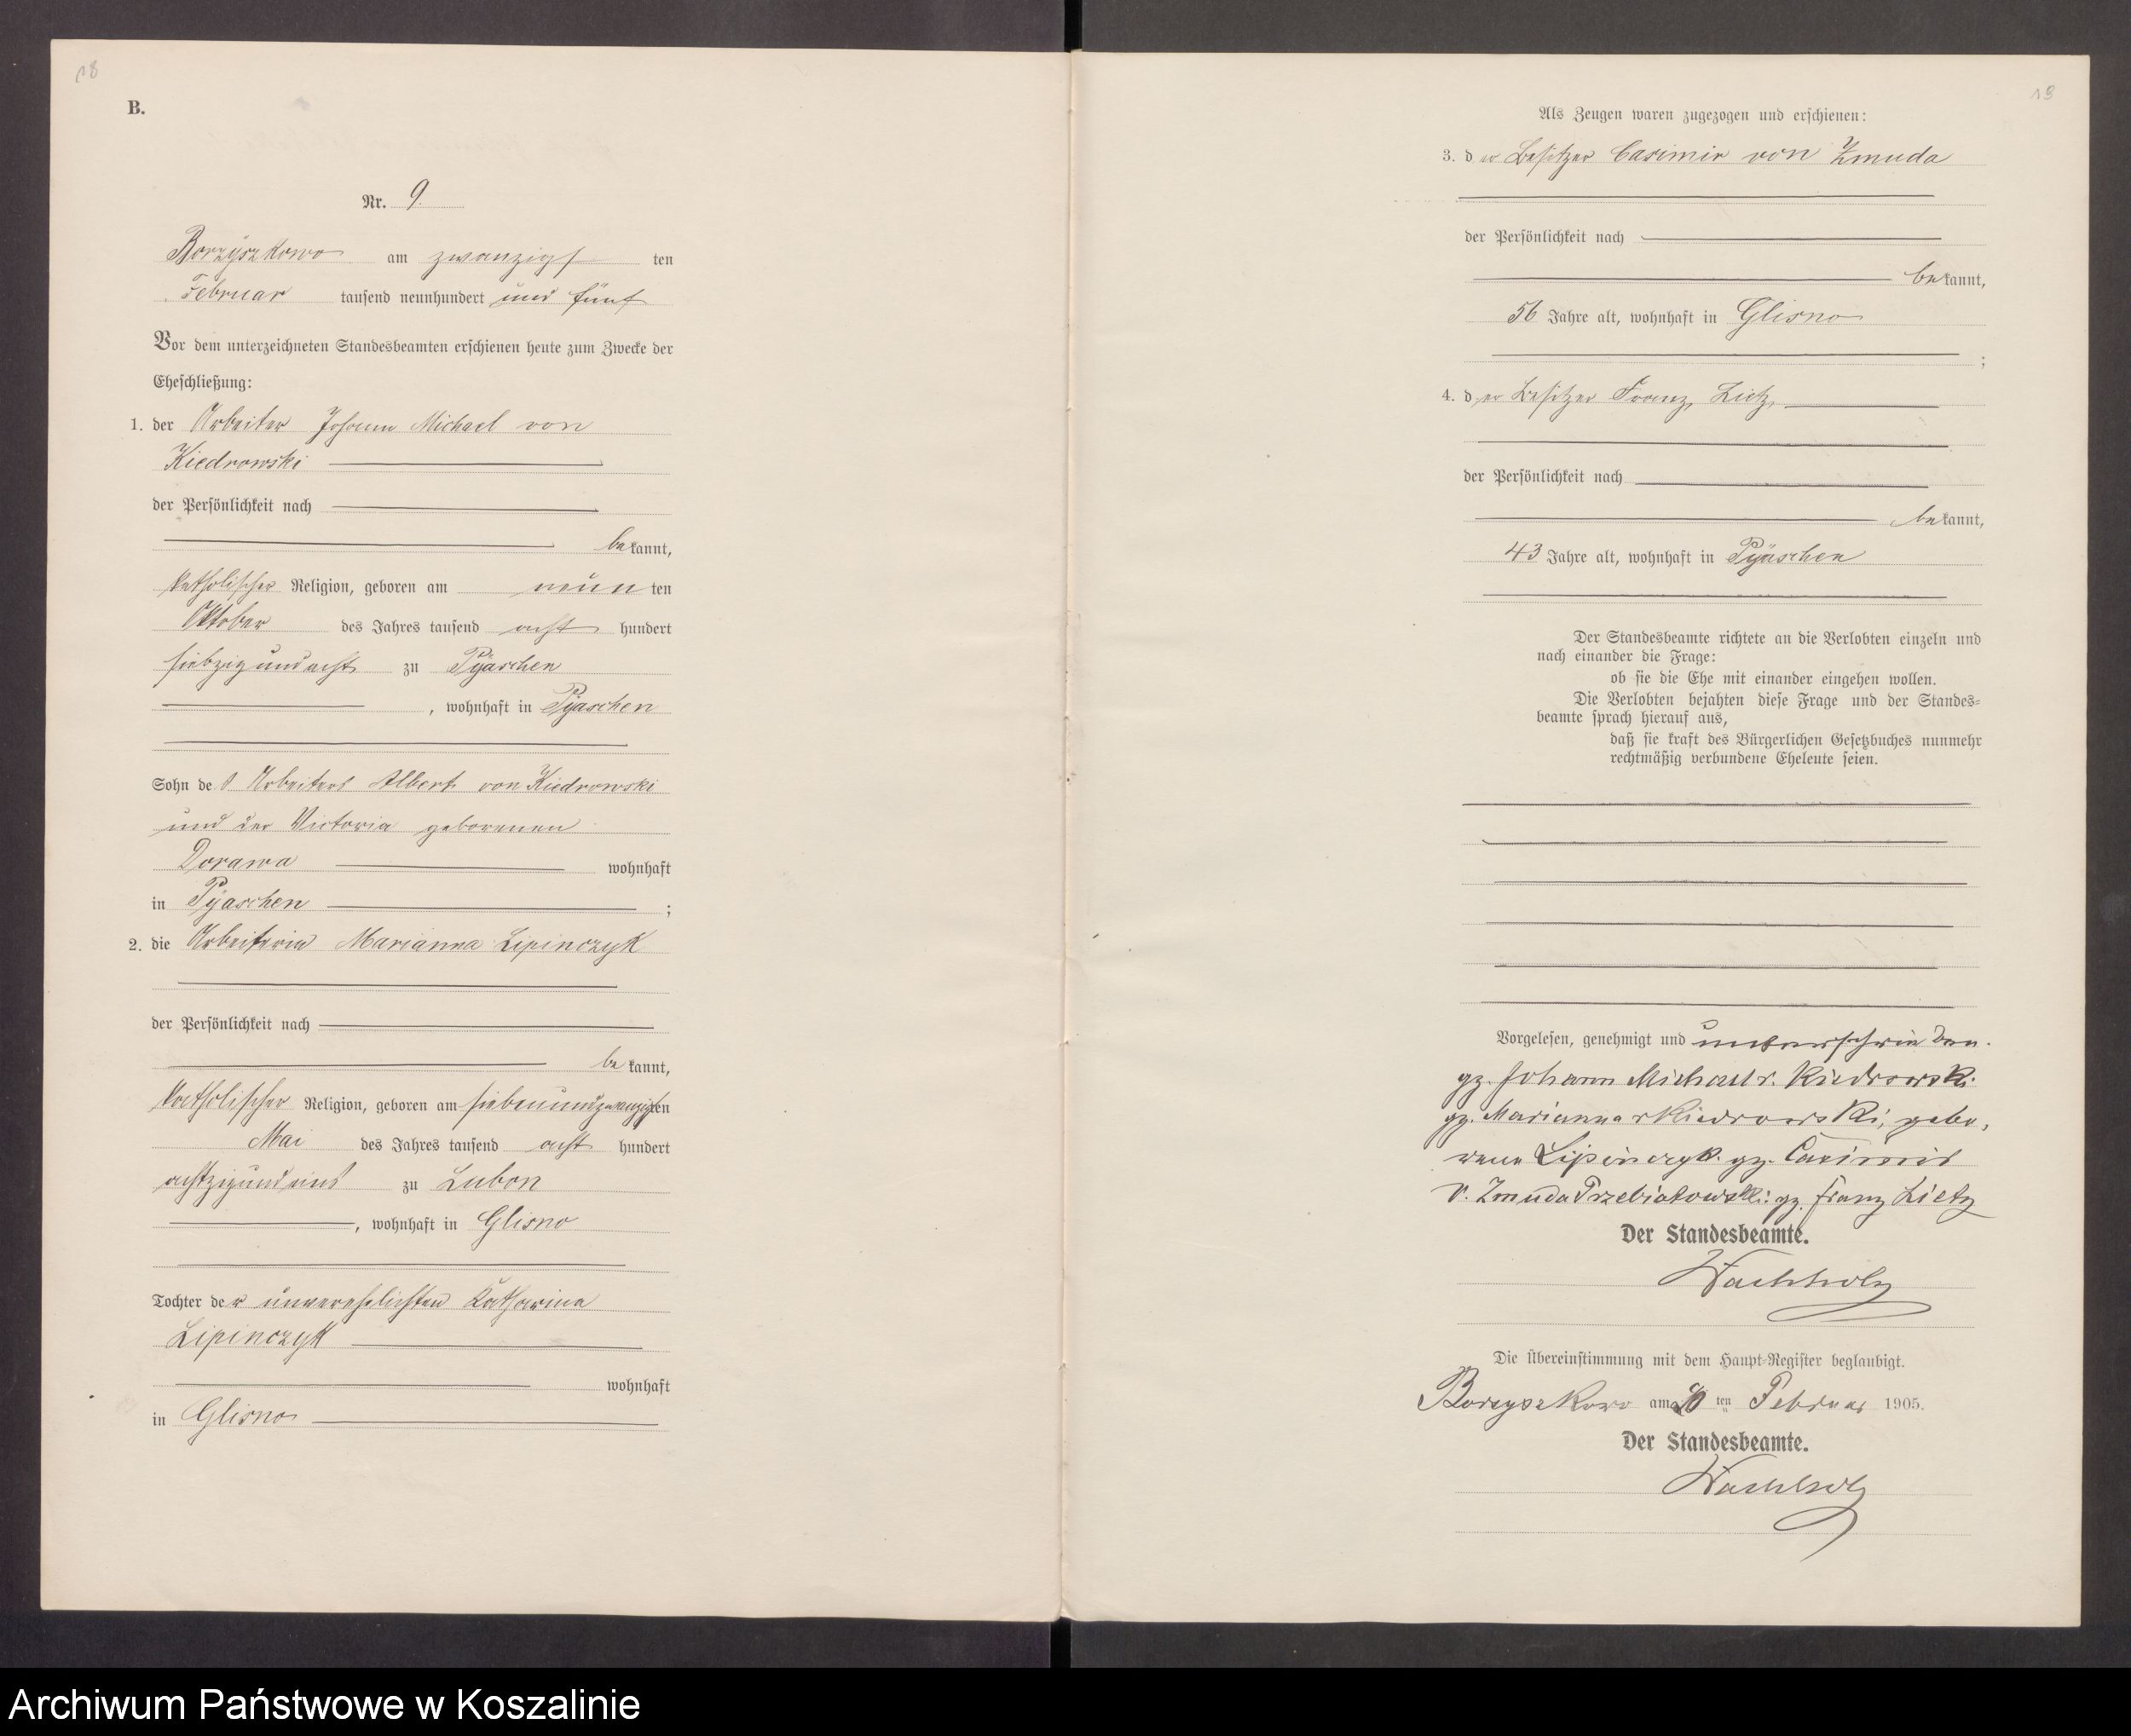 18
B.
Nr. 9.
Borzyszkowo am zwanzigsten
Februar tausend neunhundert und fünf
Vor dem unterzeichneten Standesbeamten erschienen heute zum Zwecke der
Eheschließung:
1. der Arbeiter Johann Michael von
Kiedrowski
der Persönlichkeit nach
bekannt,
katholischer Religion, geboren am neunten
Oktober des Jahres tausend acht hundert
siebzig und acht zu Pyaschen
, wohnhaft in Pyaschen
Sohn des Arbeiters Albert von Kiedrowski
und der Victoria geborenen
Dorawa wohnhaft
in Pyaschen ;
2. die Arbeiterin Marianna Lipinczyk
der Persönlichkeit nach
bekannt,
katholischer Religion, geboren am siebenundzwanzigsten
Mai des Jahres tausend acht hundert
achtzig und eins zu Lubon
, wohnhaft in Glisno
Tochter der unverehelichten Katharina
Lipinczyk
wohnhaft
in Glisno
19
Als Zeugen waren zugezogen und erschienen:
3. der Besitzer Casimir von Zmuda
der Persönlichkeit nach
bekannt,
56 Jahre alt, wohnhaft in Glisno
;
4. der Besitzer Franz Lietz
der Persönlichkeit nach
bekannt,
43 Jahre alt, wohnhaft in Pyaschen
Der Standesbeamte richtete an die Verlobten einzeln und
nach einander die Frage:
ob sie die Ehe mit einander eingehen wollen.
Die Verlobten bejahten diese Frage und der Standes-
beamte sprach hierauf aus,
daß sie kraft des Bürgerlichen Gesetzbuches nunmehr
rechtmäßig verbundene Eheleute seien.
Vorgelesen, genehmigt und unterschrieben.
gz. Johann Michael v. Kiedrowski.
gz. Marianna v Kiedrowski, gebo,
rene Lipinczyk. gz. Casimir
v. Zmuda Trzebiatowski. gz. Franz Lietz
Der Standesbeamte.
Wachholz
Die Übereinstimmung mit dem Haupt-Register beglaubigt.
Borzyszkowo am 20 ten Februar 1905.
Der Standesbeamte.
Wachholz
Archiwum Państwowe w Koszalinie